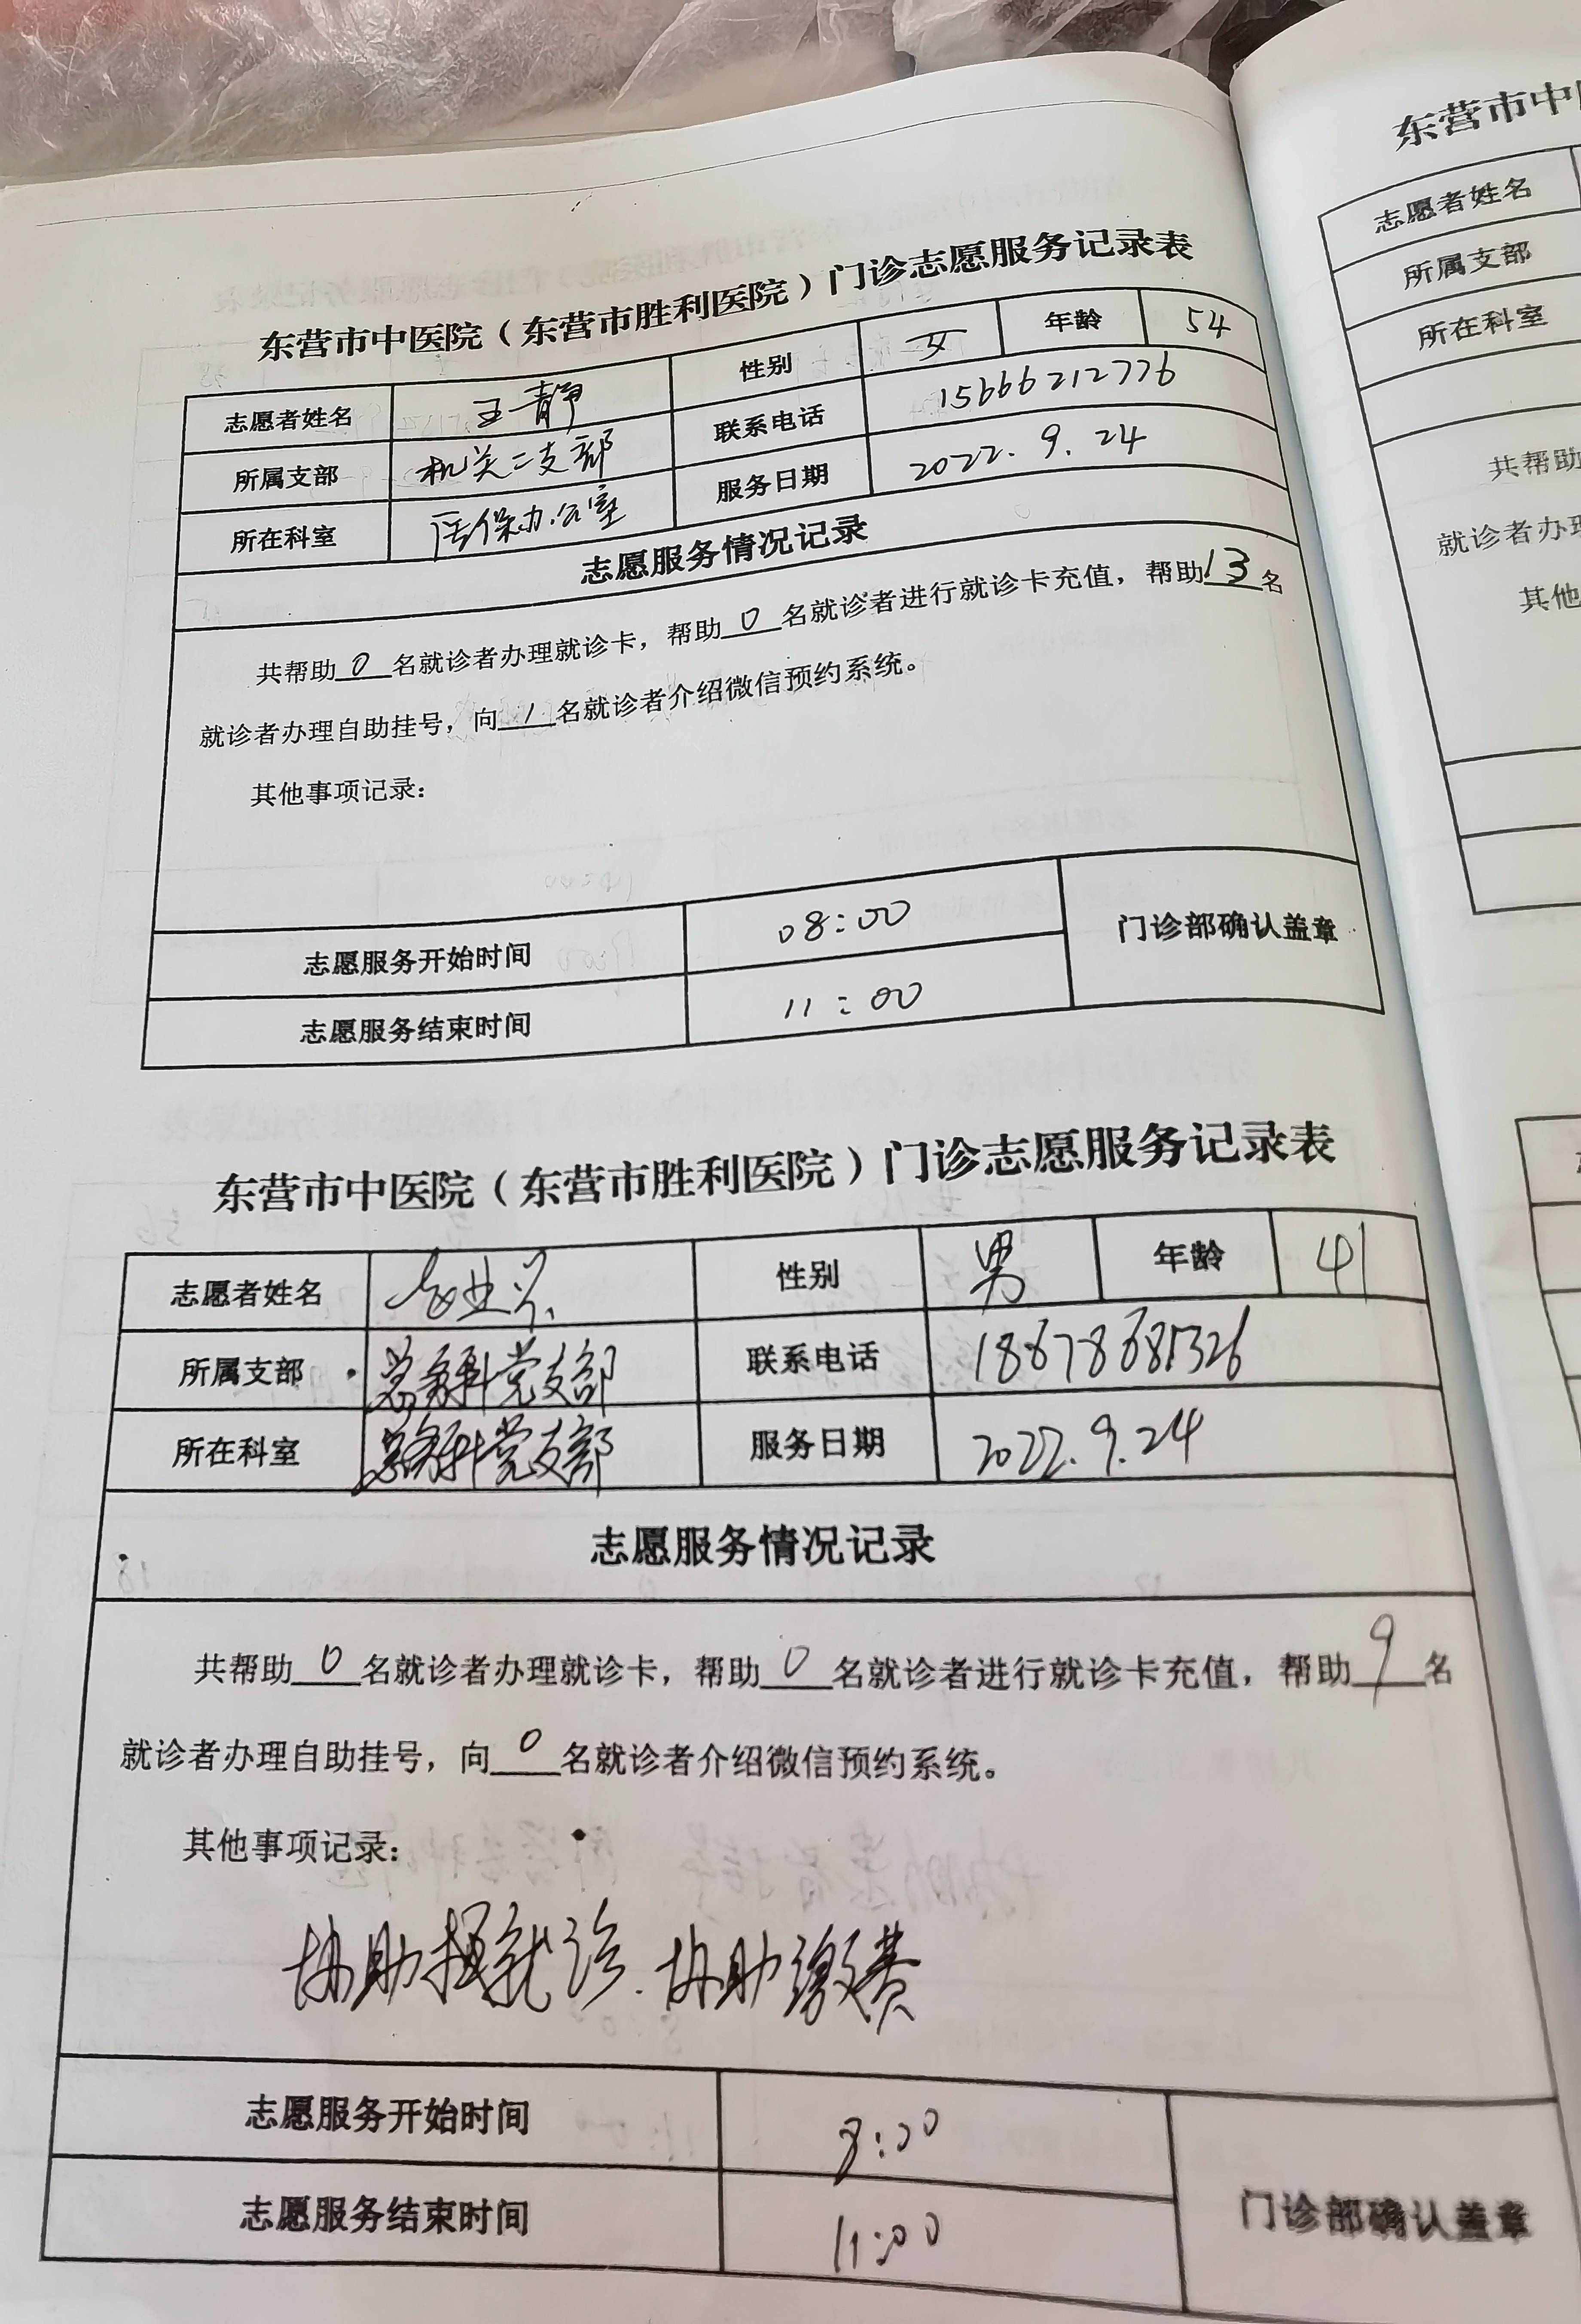 东营市中医院（东营市胜利医院）门诊志愿服务记录表
志愿者姓名 王静 性别 女 年龄 54
所属支部 机关二支部 联系电话 15666212776
所在科室 医保办公室 服务日期 2022.9.24
志愿服务情况记录
共帮助0名就诊者办理就诊卡，帮助0名就诊者进行就诊卡充值，帮助13名
就诊者办理自助挂号，向1名就诊者介绍微信预约系统。
其他事项记录：
志愿服务开始时间 08:00
门诊部确认盖章
志愿服务结束时间 11:00
东营市中医院（东营市胜利医院）门诊志愿服务记录表
志愿者姓名 性别 男 年龄 41
所属支部 党支部 联系电话 18678681326
所在科室 党支部 服务日期 2022.9.24
志愿服务情况记录
共帮助0名就诊者办理就诊卡，帮助0名就诊者进行就诊卡充值，帮助9名
就诊者办理自助挂号，向0名就诊者介绍微信预约系统。
其他事项记录：
协助 就诊.协助缴费
志愿服务开始时间 8:00
志愿服务结束时间 11:00
门诊部确认盖章
东营市中
志愿者姓名
所属支部
所在科室
共帮助
就诊者办
其他